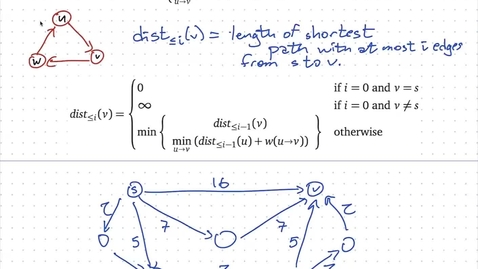 u→v
u
w
v
dist≤i(v) = length of shortest
path with at most i edges
from s to v.
dist≤i(v) = { 0 if i = 0 and v = s
∞ if i = 0 and v ≠ s
min { dist≤i−1(v)
min u→v (dist≤i−1(u) + w(u→v)) } otherwise
s 16 v
2 7 7 2
5 5